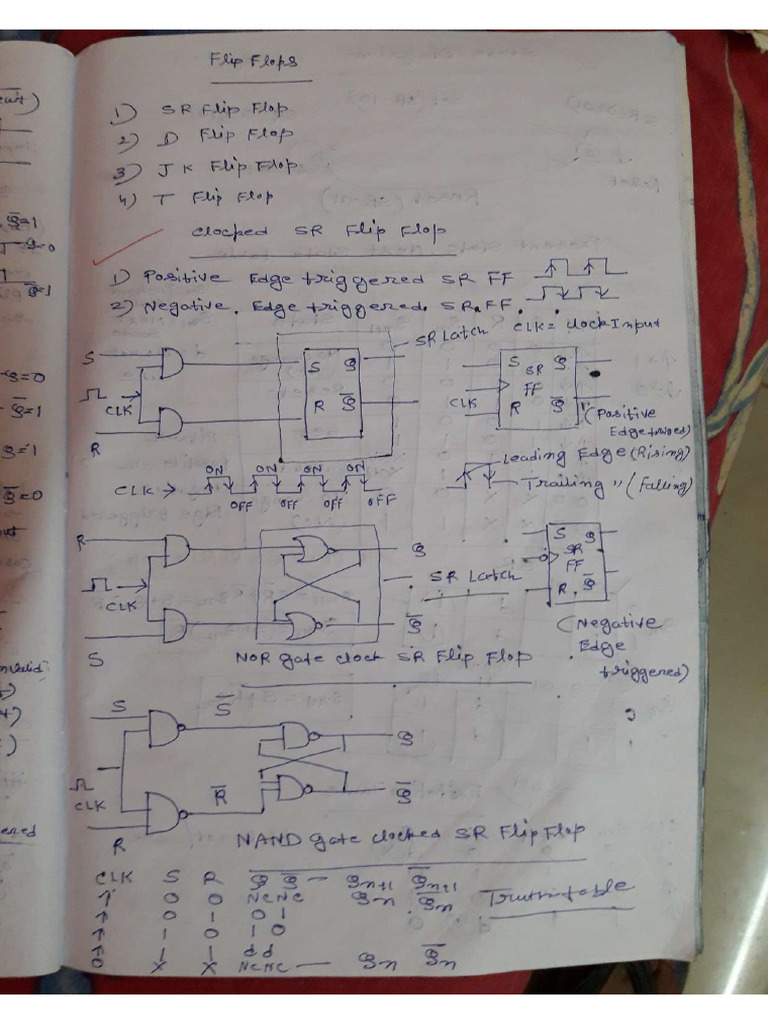 Flip Flops
1) SR Flip Flop
2) D Flip Flop
3) JK Flip Flop
4) T Flip Flop
Clocked SR Flip Flop
1) Positive Edge triggered SR FF
2) Negative. Edge triggered. SR.FF.
CLK = Clock Input
SR Latch
S
CLK
R
S Q
R Q̅
S Q
SR
FF
R Q̅
CLK
(Positive
Edge trigged)
Leading Edge (Rising)
Trailing " (Falling)
CLK →
ON ON ON ON
OFF OFF OFF OFF
R
CLK
S
Q
Q̅
SR Latch
S Q
SR
FF
R Q̅
(Negative
Edge
triggered)
NOR gate clock SR Flip Flop
S S̅
CLK
R R̅
Q
Q̅
NAND Gate clocked SR Flip Flop
CLK S R Q Q̅ — Qn+1 Q̅n+1
↑ 0 0 NC NC Qn Q̅n
↑ 0 1 0 1
↑ 1 0 1 0
↑ 1 1 d d
0 X X NC NC — Qn Q̅n
Truth table
Q̅=1
Q=0
Q̅=1
Q=0
Q̅=1
Q=1
Q̅=0